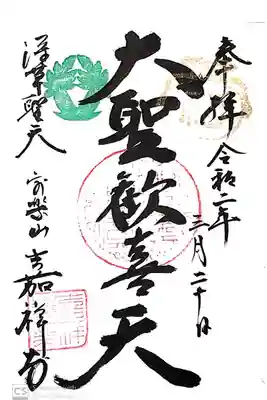 奉拝 令和二年
三月二十日
大聖歓喜天
深草聖天
安楽山 嘉祥寺
CS